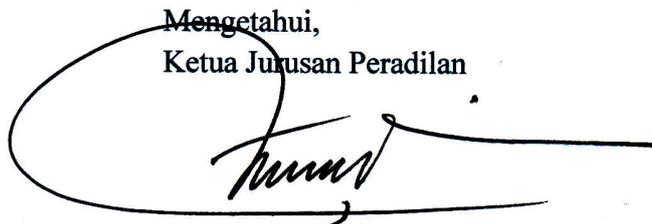 Mengetahui,
Ketua Jurusan Peradilan